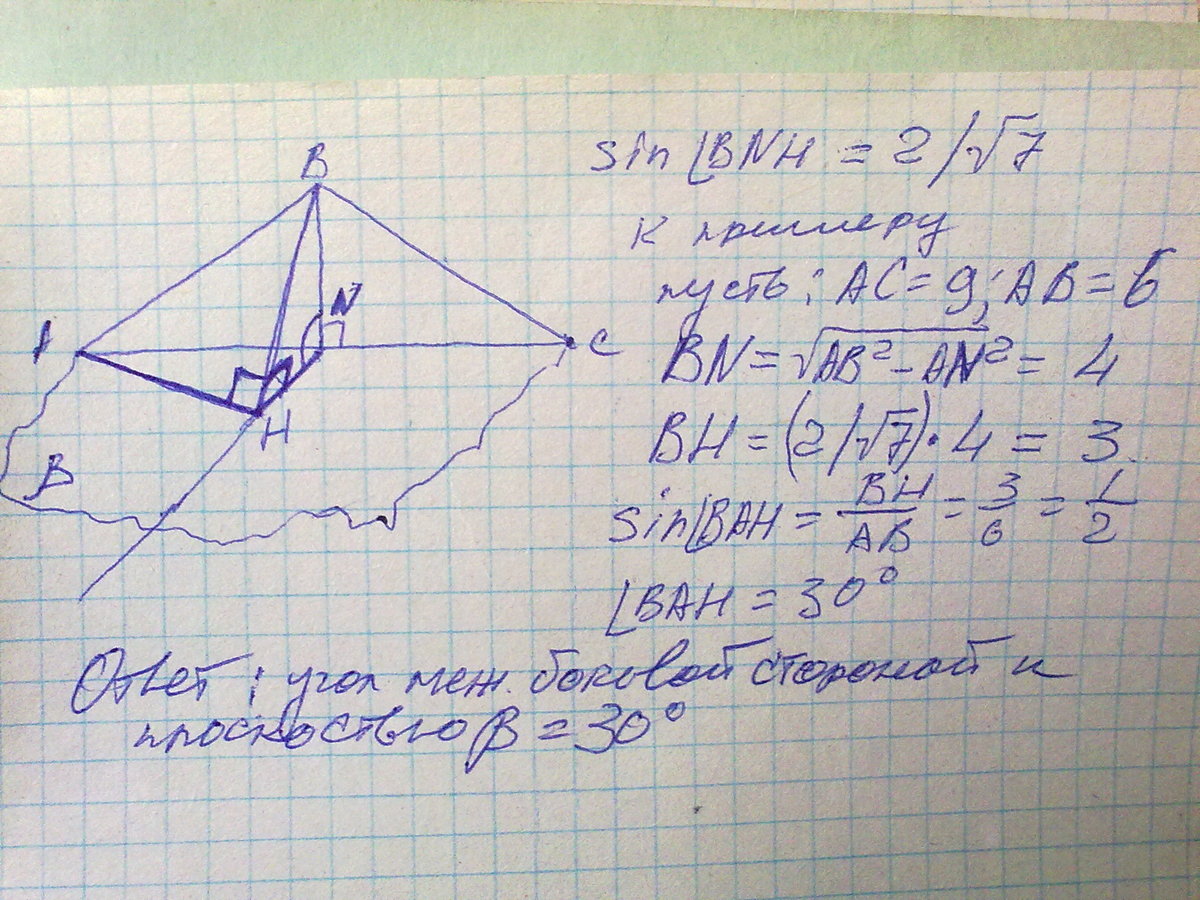 B
N
A
C
H
β
sin∠BNH = 2/√7
к примеру
пусть: AC = 9; AB = 6
BN = √AB² - AN² = 4
BH = (2/√7)·4 = 3
sin∠BAH = BH/AB = 3/6 = 1/2
∠BAH = 30°
Ответ: угол меж. боковой стороной и
плоскостью β = 30°